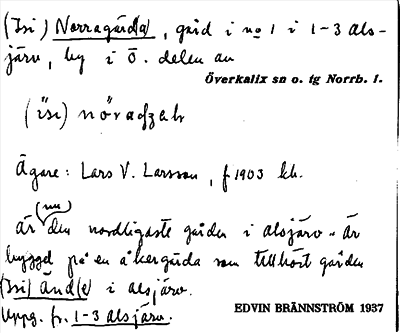 (Isi) Norragård(a), gård i no 1 i 1-3 als-
järv, by i ö. delen av
Överkalix sn o. tg Norrb. l.
(ısı) nöragaḥ
Ägare: Lars V. Larsson, f 1903 kh.
(nu)
är den nordligaste gården i alsjärv. är
byggd på en åkergärda som tillhört gården
(Isi) änd(e) i alsjärv.
Uppg. fr. 1-3 alsjärv.
EDVIN BRÄNNSTRÖM 1937